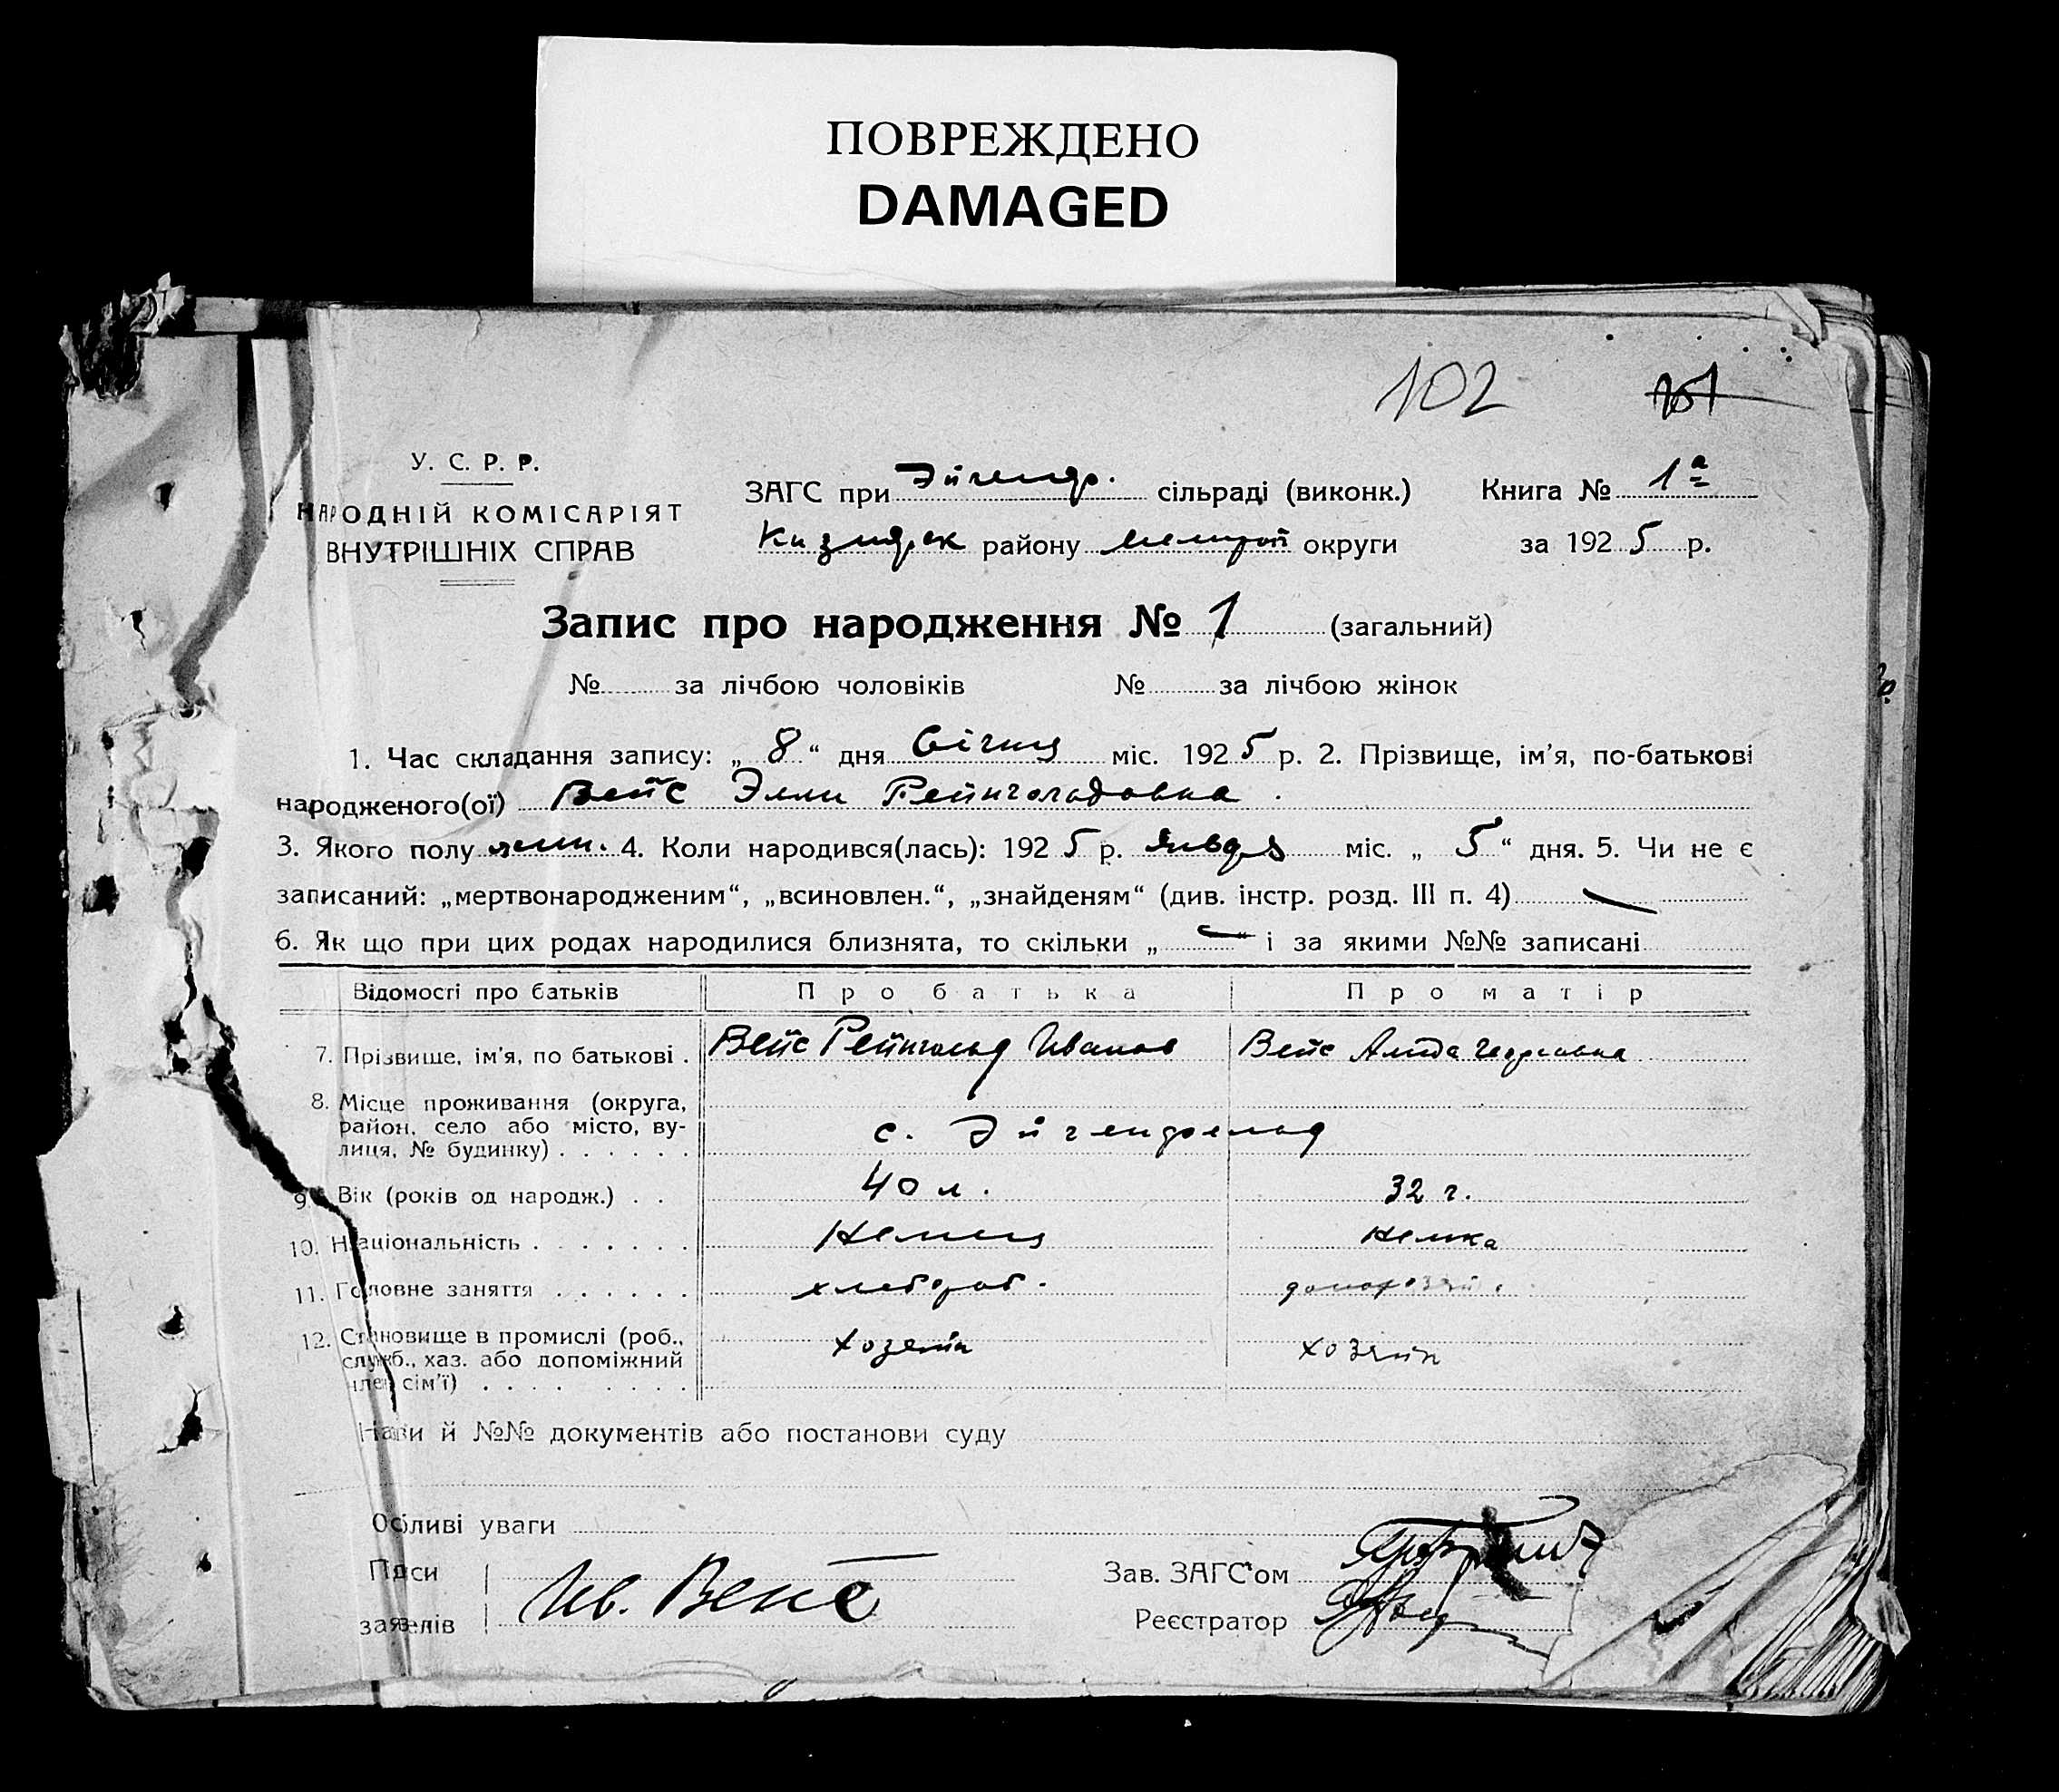 ПОВРЕЖДЕНО
DAMAGED
102
У. С. Р. Р.
НАРОДНІЙ КОМІСАРІЯТ
ВНУТРІШНІХ СПРАВ
ЗАГС при Эйгенф. сільраді (виконк.) Книга № 1а
району округи за 1925 р.
Запис про народження № 1 (загальний)
№ за лічбою чоловіків № за лічбою жінок
1. Час складання запису: „8“ дня Січня міс. 1925 р. 2. Прізвище, ім'я, по-батькові
народженого(ої) Вейс Элли Рейнгольдовна.
3. Якого полу жен. 4. Коли народився(лась): 1925 р. міс. „5“ дня. 5. Чи не є
записаний: „мертвонародженим“, „всиновлен.“, „знайденям“ (див. інстр. розд. III п. 4)
6. Як що при цих родах народилися близнята, то скільки „ “ і за якими №№ записані
Відомості про батьків Про батька Про матір
7. Прізвище, ім'я, по батькові . Вейс Рейнгольд Иванов Вейс Алида Георговна
8. Місце проживання (округа,
район, село або місто, ву-
лиця, № будинку) . . . . . . с. Эйгенфельд
9. Вік (років од народж.) . . 40 л. 32 г.
10. Національність . . . . . . . Немец Немка
11. Головне заняття . . . . . . хлебороб. домохозяй.
12. Становище в промислі (роб.,
служб., хаз. або допоміжний
член сім'ї) . . . . . . . . . хозяин хозяин
Назви й №№ документів або постанови суду
Осбливі уваги
Підпси
заявелів Ив. Вейс
Зав. ЗАГС'ом
Реєстратор